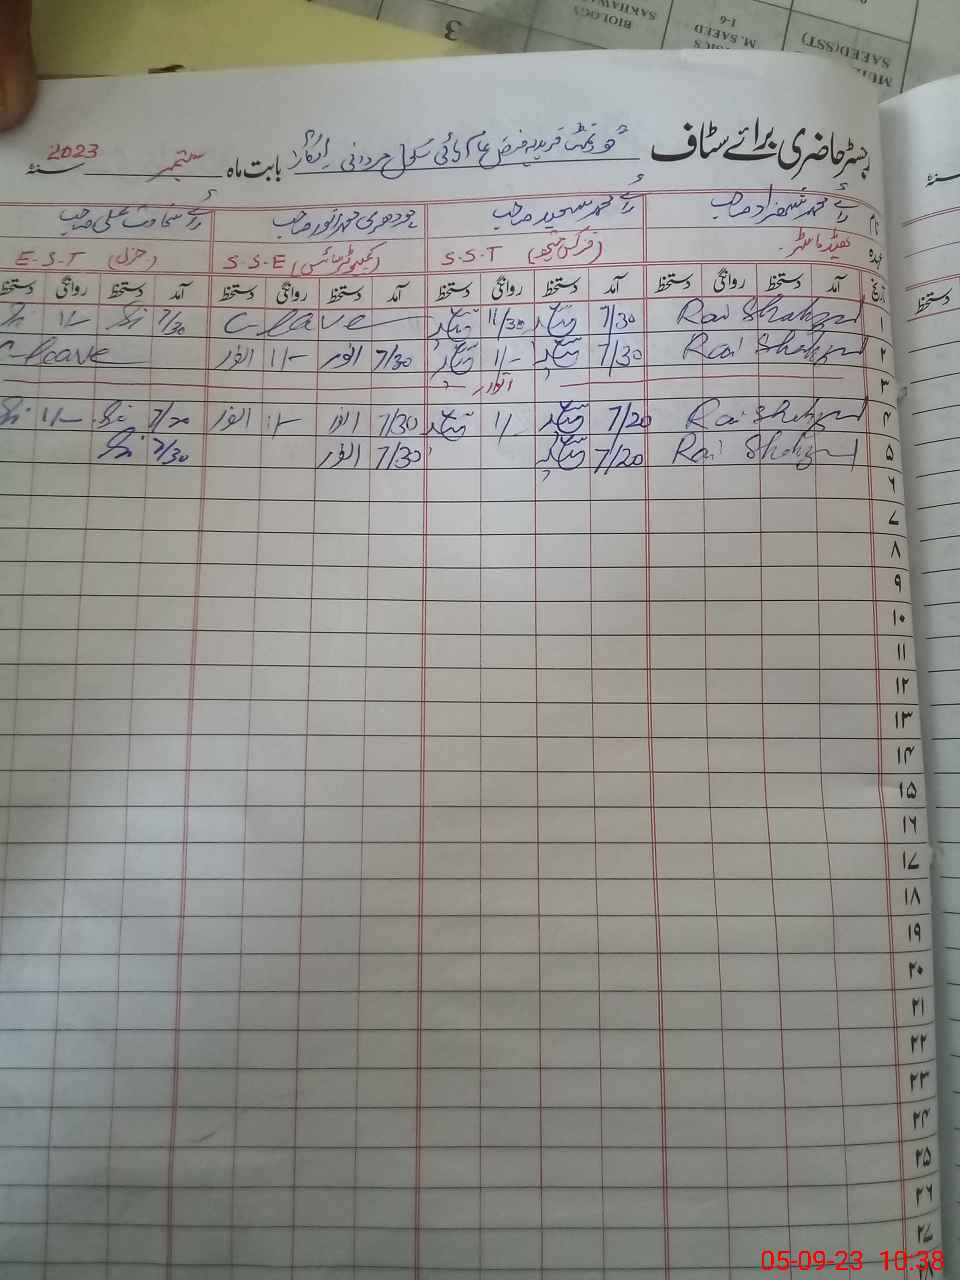 3
BIOLOGY
SAKHAWA
M. SAEED
1-6
SAEED(SST)
رجسٹر حاضری برائے سٹاف گورنمنٹ فریدیہ فیض عام ہائی سکول بابت ماہ ستمبر 2023 سنہ
نام رائے محمد شہزاد صاحب رائے محمد سعید صاحب چودھری محمد انور صاحب رائے سخاوت علی صاحب
عہدہ ہیڈ ماسٹر S.S.T S.S.E (کمپیوٹر سائنس) E.S.T (جنرل)
تاریخ آمد دستخط روانگی دستخط آمد دستخط روانگی دستخط آمد دستخط روانگی دستخط آمد دستخط روانگی دستخط
۱ 7/30 11/30 C-leave 7/30 11/-
۲ Rai 7/30 11/- 7/30 انور 11/- انور C-leave
۳ اتوار
۴ 7/20 11/- 7/30 انور 11/- انور 7/20 11/-
۵ Rai 7/20 7/30 انور 7/30
۶
۷
۸
۹
۱۰
۱۱
۱۲
۱۳
۱۴
۱۵
۱۶
۱۷
۱۸
۱۹
۲۰
۲۱
۲۲
۲۳
۲۴
۲۵
۲۶
۲۷
سنہ
دستخط
05-09-23 10:38